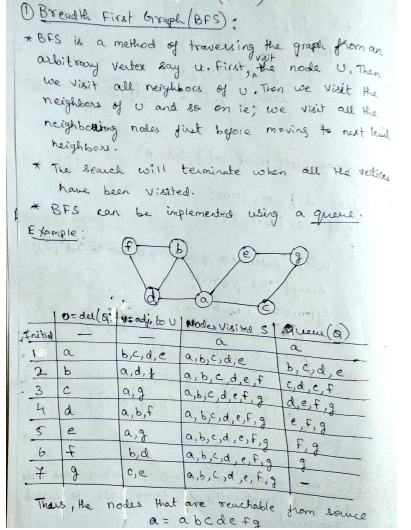 ① Breadth First Graph (BFS) :
* BFS is a method of traversing the graph from an
arbitrary vertex say u. First, visit the node U. Then
we visit all neighbors of U. Then we visit the
neighbors of U and so on ie; we visit all the
neighbouring nodes first before moving to next level
neighbors.
* The search will terminate when all the vertices
have been visited.
* BFS can be inplemented using a queue.
Example:
f b e g
d a c
U=del(Q) V=adj. to U Nodes Visited S Queue(Q)
Initial — — a a
1 a b,c,d,e a,b,c,d,e b,c,d,e
2 b a,d,f a,b,c,d,e,f c,d,e,f
3 c a,g a,b,c,d,e,f,g d,e,f,g
4 d a,b,f a,b,c,d,e,f,g e,f,g
5 e a,g a,b,c,d,e,f,g f,g
6 f b,d a,b,c,d,e,f,g g
7 g c,e a,b,c,d,e,f,g -
Thus, the nodes that are reachable from source
a = a b c d e f g